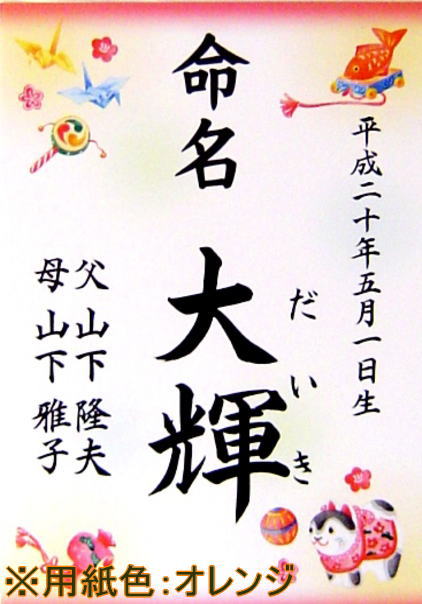 平成二十年五月一日生
命名 大輝
だいき
父 山下 隆夫
母 山下 雅子
※用紙色:オレンジ